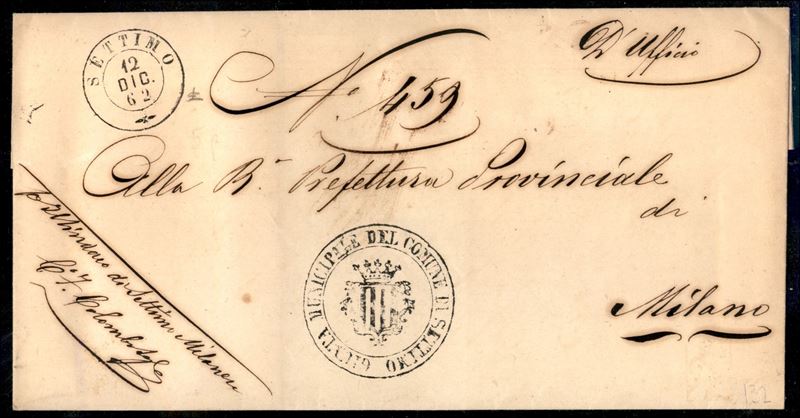 SETTIMO
12
DIC.
62
D'Ufficio
No. 459
Alla R. Prefettura Provinciale
di
Milano
Sindaco di Settimo Milanese
Colombo
GIUNTA MUNICIPALE DEL COMUNE DI SETTIMO
132